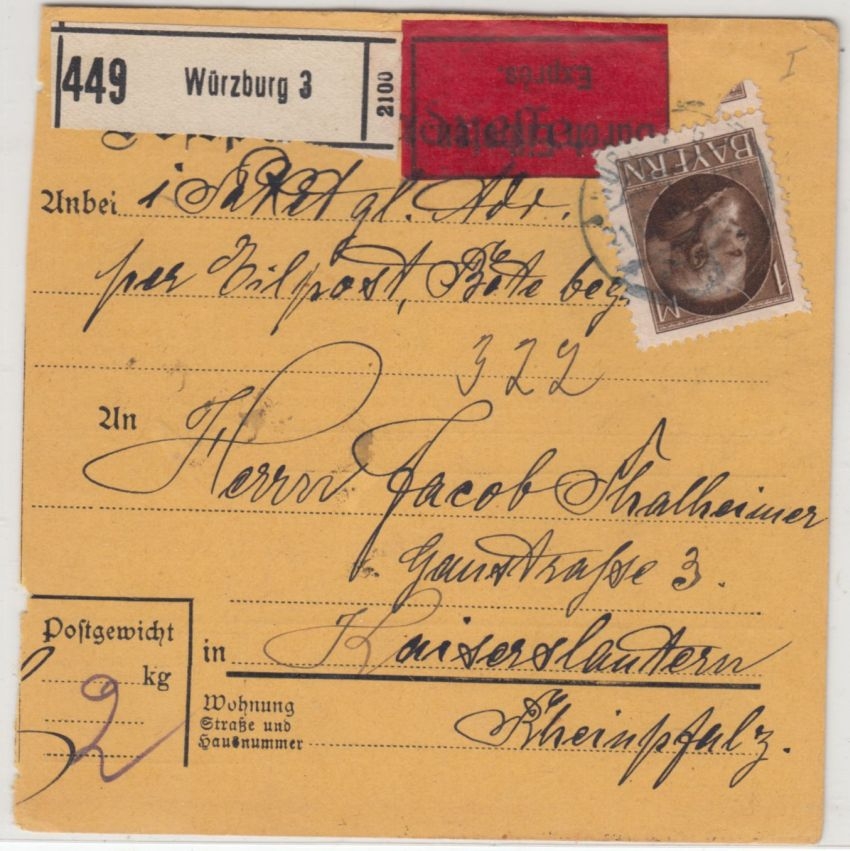 449 Würzburg 3 2100
Expres.
Durch Eilboten
BAYERN
1 M
I
Anbei 1 Paket gl. Adr.
per Eilpost, Bote bez.
322
An Herrn Jacob Thalheimer
Gaustraße 3.
in Kaiserslautern
Rheinpfalz.
Postgewicht
2 kg
Wohnung
Straße und
Hausnummer